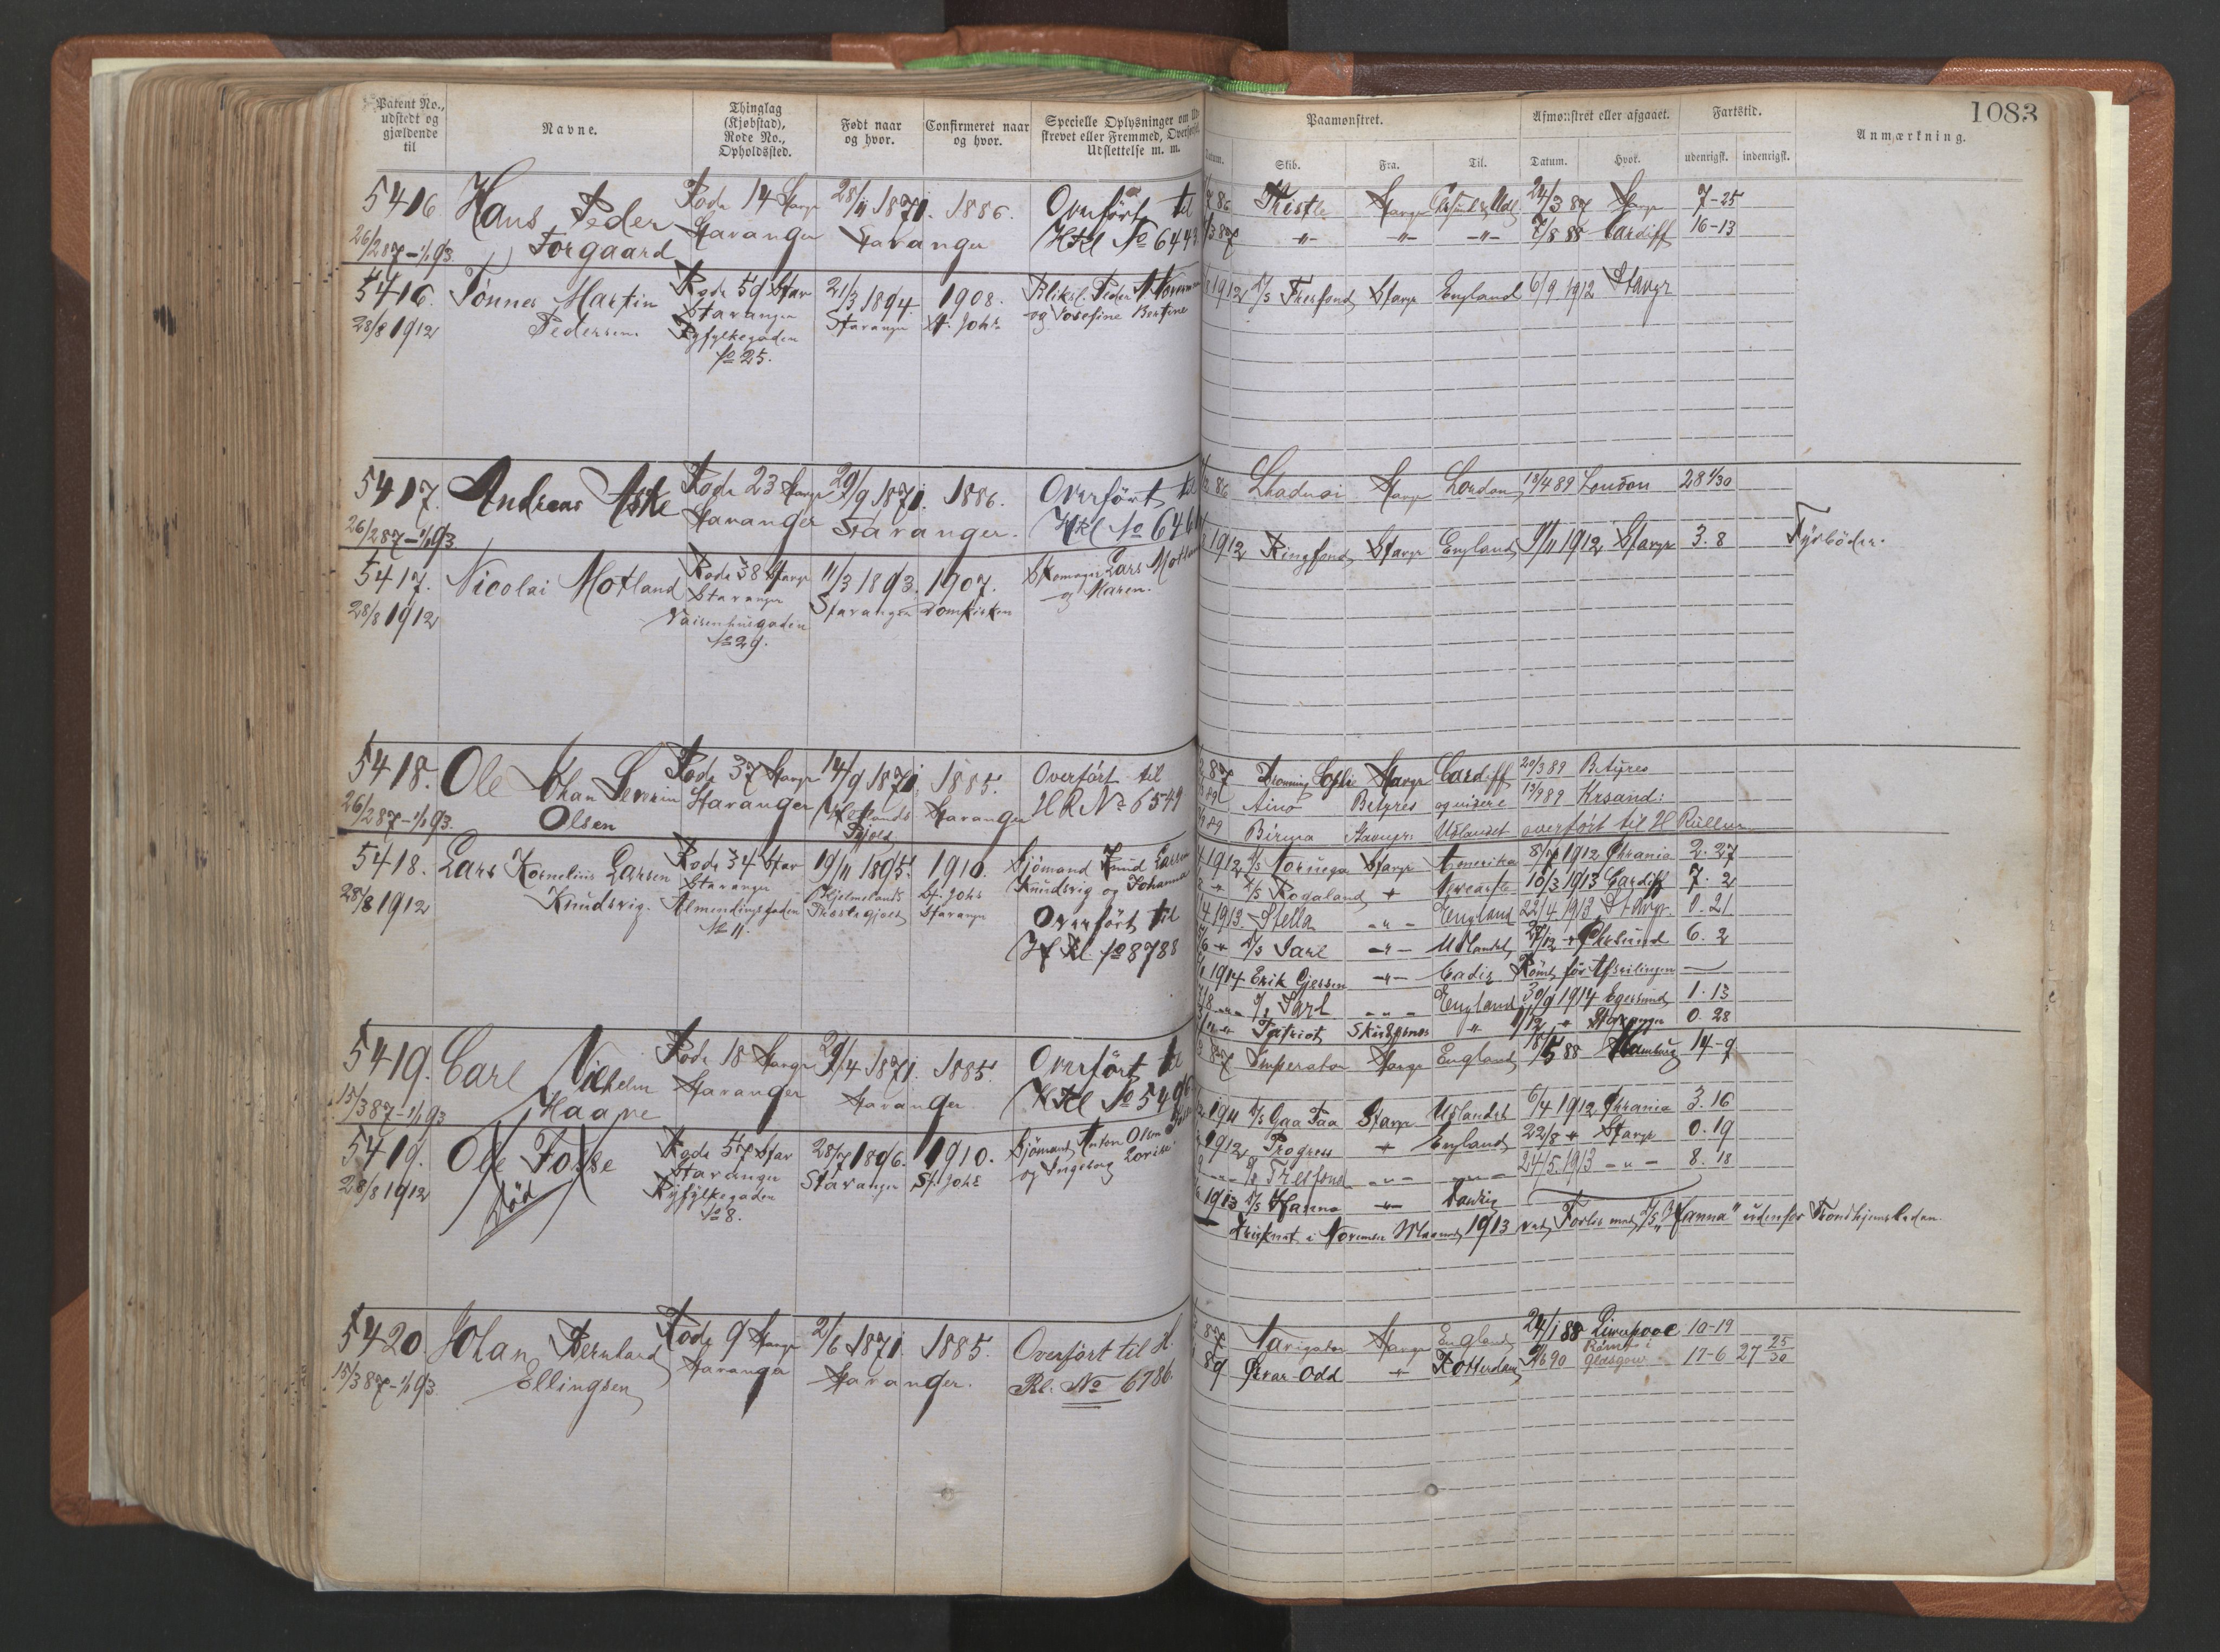 1083
Patent No., udstedt og gjældende til
Navne.
Thinglag (Kjøbstad), Rode No., Opholdssted.
Født naar og hvor.
Confirmeret naar og hvor.
Specielle Oplysninger om Ud-
skrevet eller Fremmed, Overførsel,
Udslettelse m. m.
Paamønstret.
Afmønstret eller afgaaet.
Fartstid.
Anmærkning.
Datum.
Skib.
Fra.
Til.
Datum.
Hvor.
udenrigsk.
indenrigsk.
5416 Hans Peder Rode 14 Stavgr 28/11 1871. 1886. Overført til
26/2 87 – 1/1 93. Torgaard Stavanger Stavanger HRl No 6443
86 Stavgr 24/3 87 Stavgr 7-25
3 87 -"- -"- -"- 7/8 88 Cardiff 16-13
5416. Tønnes Martin Rode 59 Stav 21/3 1894. 1908. Bliksl. Peder
28/8 1912 Pedersen Stavanger Stavanger St. Johs og Josefine Bertine
Ryfylkegaden
No 25.
1912 D/S Stavgr England 6/9 1912 Stavgr
5417. Andreas Aske Rode 23 Stavgr 29/9 1871. 1886. Overført til
26/2 87 – 1/1 93 Stavanger Stavanger. HRl No
86 Stavgr London 18/4 89 London 28 1/30
5417. Nicolai Motland Rode 38 Stavgr 11/3 1893. 1907. Skomager Lars Motland
28/8 1912 Stavanger Stavanger Domkirken og Maren.
Vaisenhusgaden
No 29.
1912 Ringfond Stavgr England 9/11 1912 Stavgr 3. 8 Fyrbøder.
5418. Ole Johan Severin Rode 37 Stavgr 14/9 1871. 1885. Overført til
26/2 87 – 1/1 93. Olsen Stavanger Stavanger HR No 6549
87 Dronning Sophie Stavgr Cardiff 20/3 89 B.Ayres
89 Aino B.Ayres 13/9 89 Krsand:
89 Birma Stavngr: Udlandet overført til H Rullen
5418. Lars Kornelius Larsen Rode 34 Stav 19/11 1895. 1910. Sjømand Knud Larsen
28/8 1912 Knudsvig. Stavanger Hjelmelands St. Johs Knudsvig og Johanna
Almendingsgaden Stavanger Overført til
No 11. H Rl. No 8788
1912 D/S Noruega Stavgr Amerika 1912 Chrania 2. 27
D/S Rogaland Newcastle 10/3 1913 Cardiff 7. 2
4 1913. Stella -"- England 22/4 1913 Stavgr. 0. 21
D/S Jarl -"- Udlandet Chrsund 6. 2
1914 Erik Gjersen -"- Cadiz Rømt før Afseilingen —
D/S Jarl -"- England 30/9 1914 Egersund 1. 13
Patriot Skudesnes " 1/12 Stavanger 0. 28
5419. Carl Vilhelm Rode 18 Stavgr 29/4 1871. 1885. Overført til
15/3 87 – 1/1 93 Haave Stavanger Stavanger HRl No
87 Imperator Stavgr England 18/5 88 Hamburg 14-9
5419. Ole Fosse Rode 57 Stav 28/7 1896. 1910. Sjømand Anton Olsen
28/8 1912 Død Stavanger Stavanger St. Johs og Ingeborg Lovise
Ryfylkegaden
No 8.
1911 D/S Gaa Paa Stavgr Udlandet 6/4 1912 Chrania 3. 16
1912 Progress England 22/8 Stavgr 0. 19
-"- 24/5 1913 -"- 8. 18
1913 D/S Hanna Danzig
Druknet i November Maaned 1913 ved Forlis med D/S "Hanna" udenfor Trondhjemsleden.
5420. Johan Bernhard Rode 9 Stavgr 2/6 1871. 1885. Overført til H.
15/3 87 – 1/1 93 Ellingsen Stavanger Stavanger. Rl: No 6786.
87 Navigator Stavgr England 24/1 88 Liverpool 10-19
89 Ørvar-Odd Rotterdam 90 Rømt i Glasgow 17-6 27 25/30